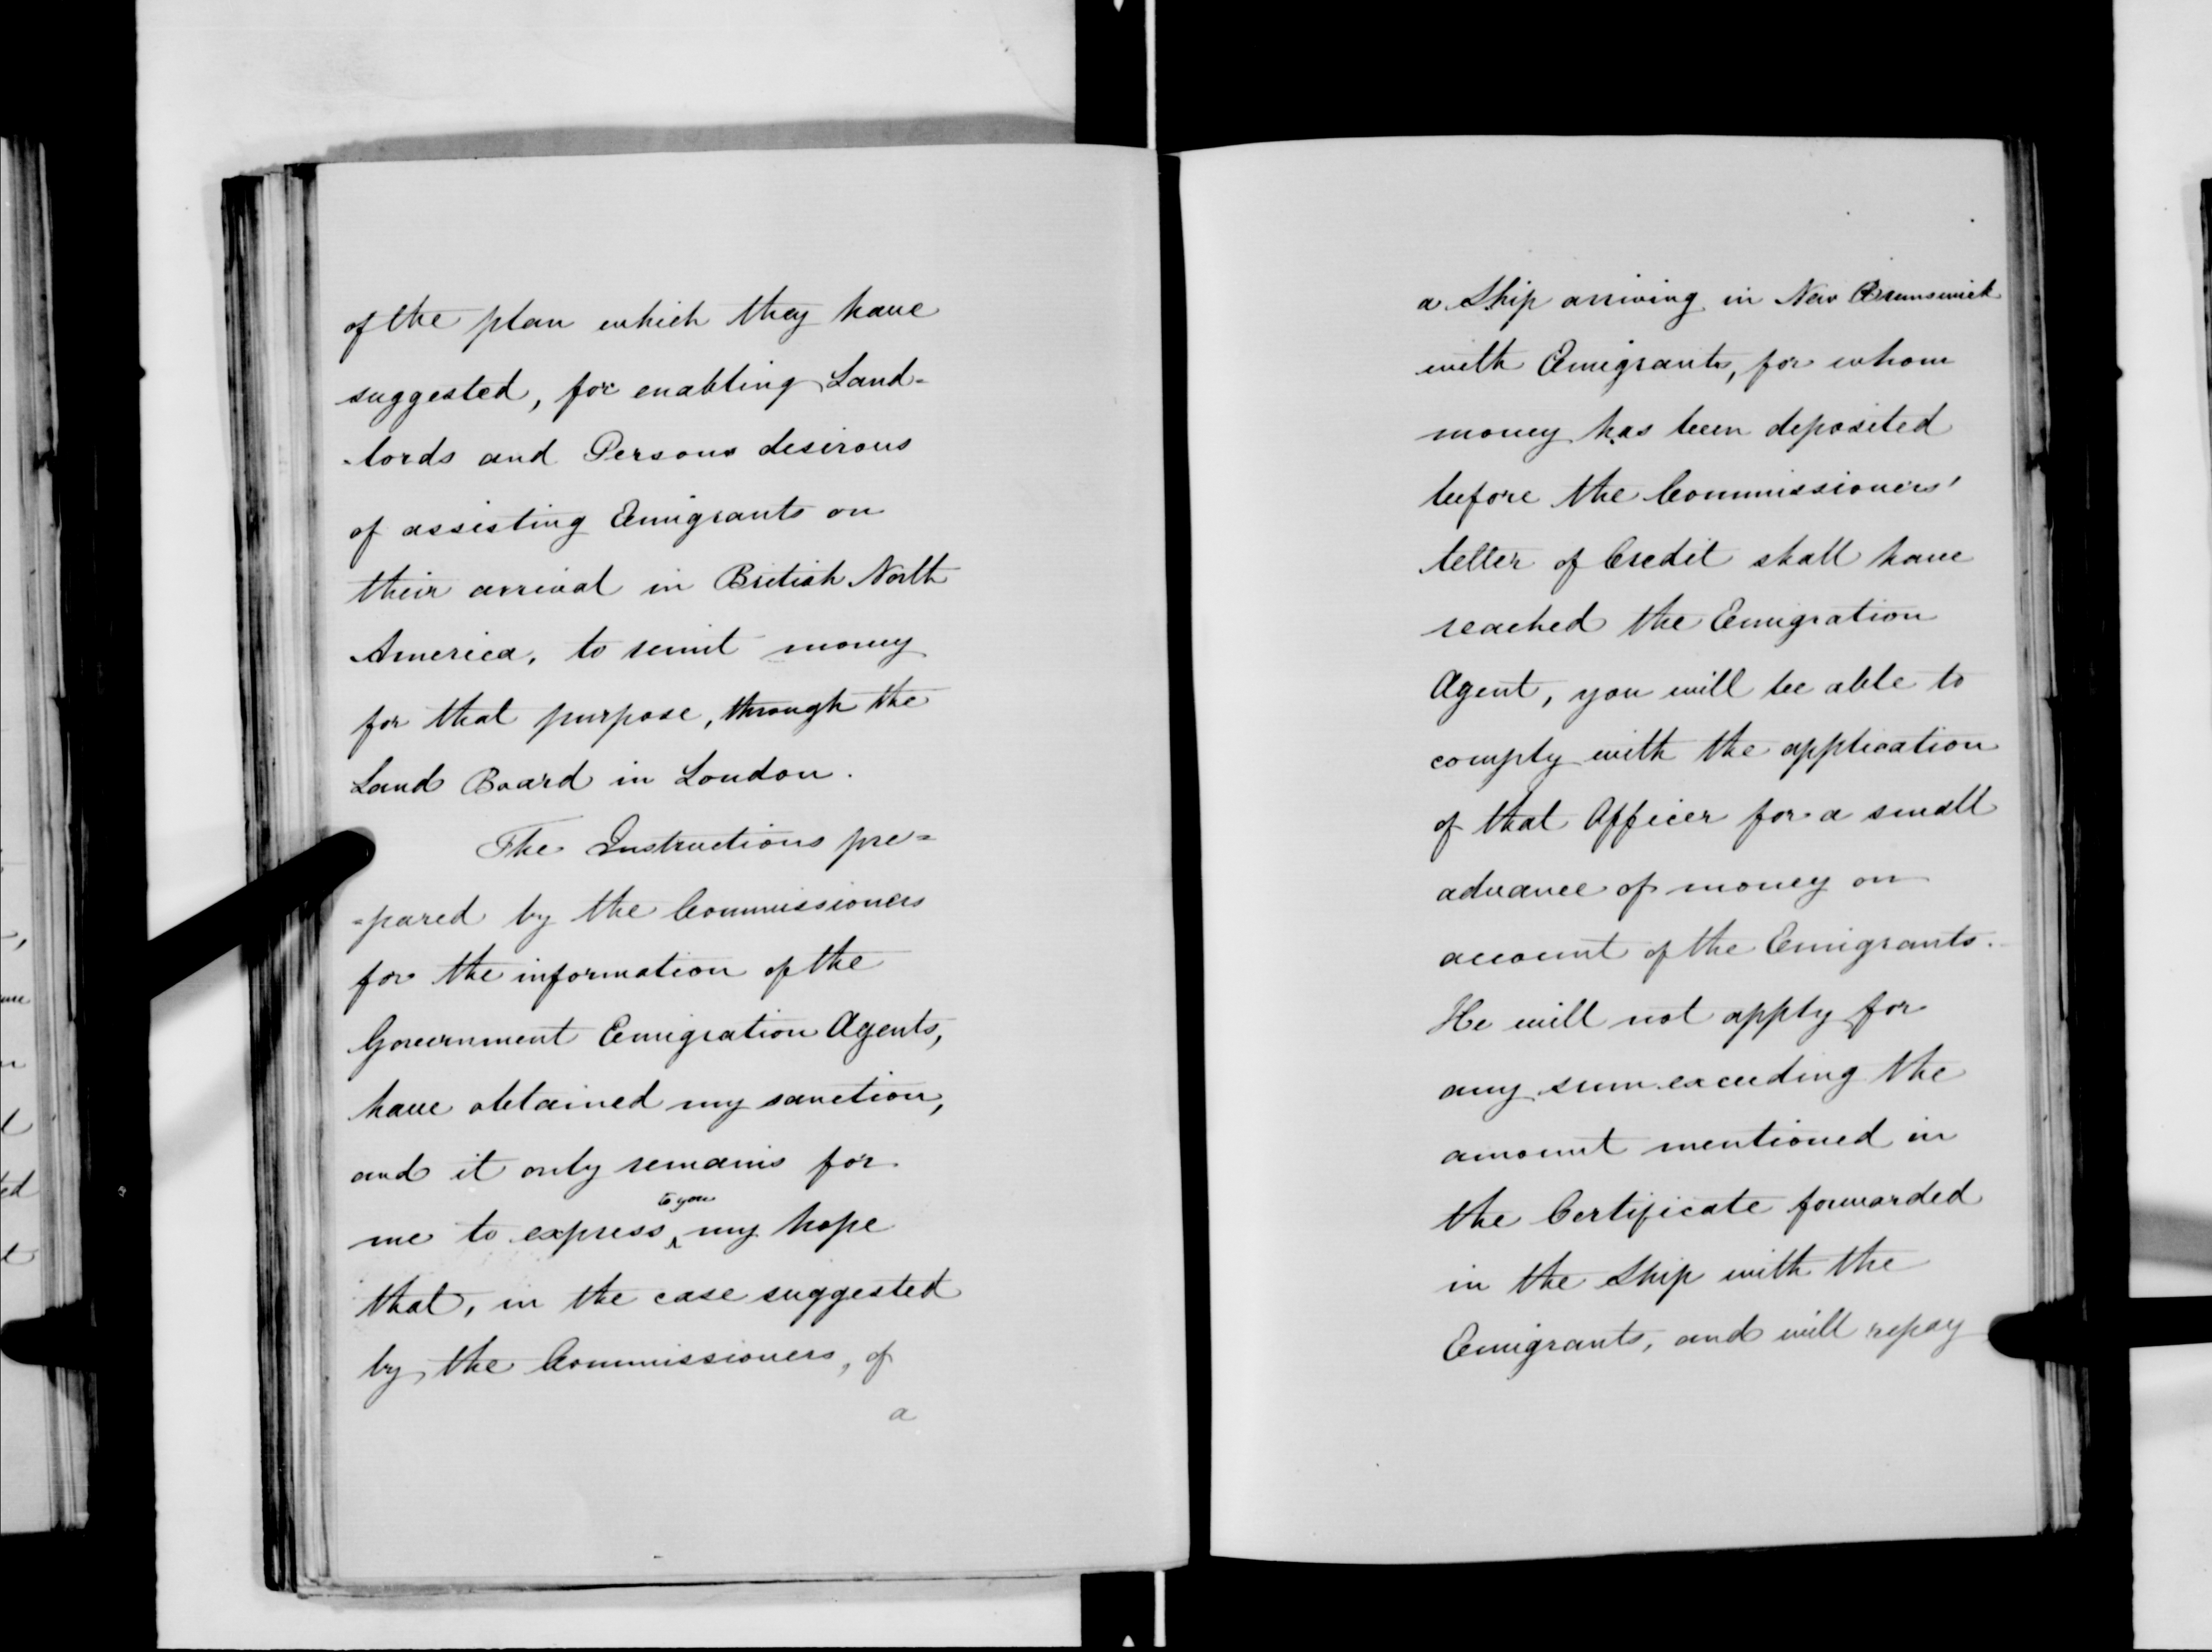 of the plan which they have
suggested, for enabling Land-
-lords and Persons desirous
of assisting Emigrants on
their arrival in British North
America, to remit money
for that purpose, through the
Land Board in London.
The Instructions pre=
=pared by the Commissioners
for the information of the
Government Emigration Agents,
have obtained my sanction,
and it only remains for
to you
me to express ^ my hope
that, in the case suggested
by the Commissioners, of
a
a Ship arriving in New Brunswick
with Emigrants, for whom
money has been deposited
before the Commissioners'
letter of Credit shall have
reached the Emigration
Agent, you will be able to
comply with the application
of that Officer for a small
advance of money on
account of the Emigrants.
He will not apply for
any sum exceeding the
amount mentioned in
the Certificate forwarded
in the Ship with the
Emigrants, and will repay